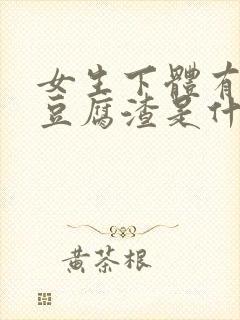 女生下體有
豆腐渣是什
黃茶根